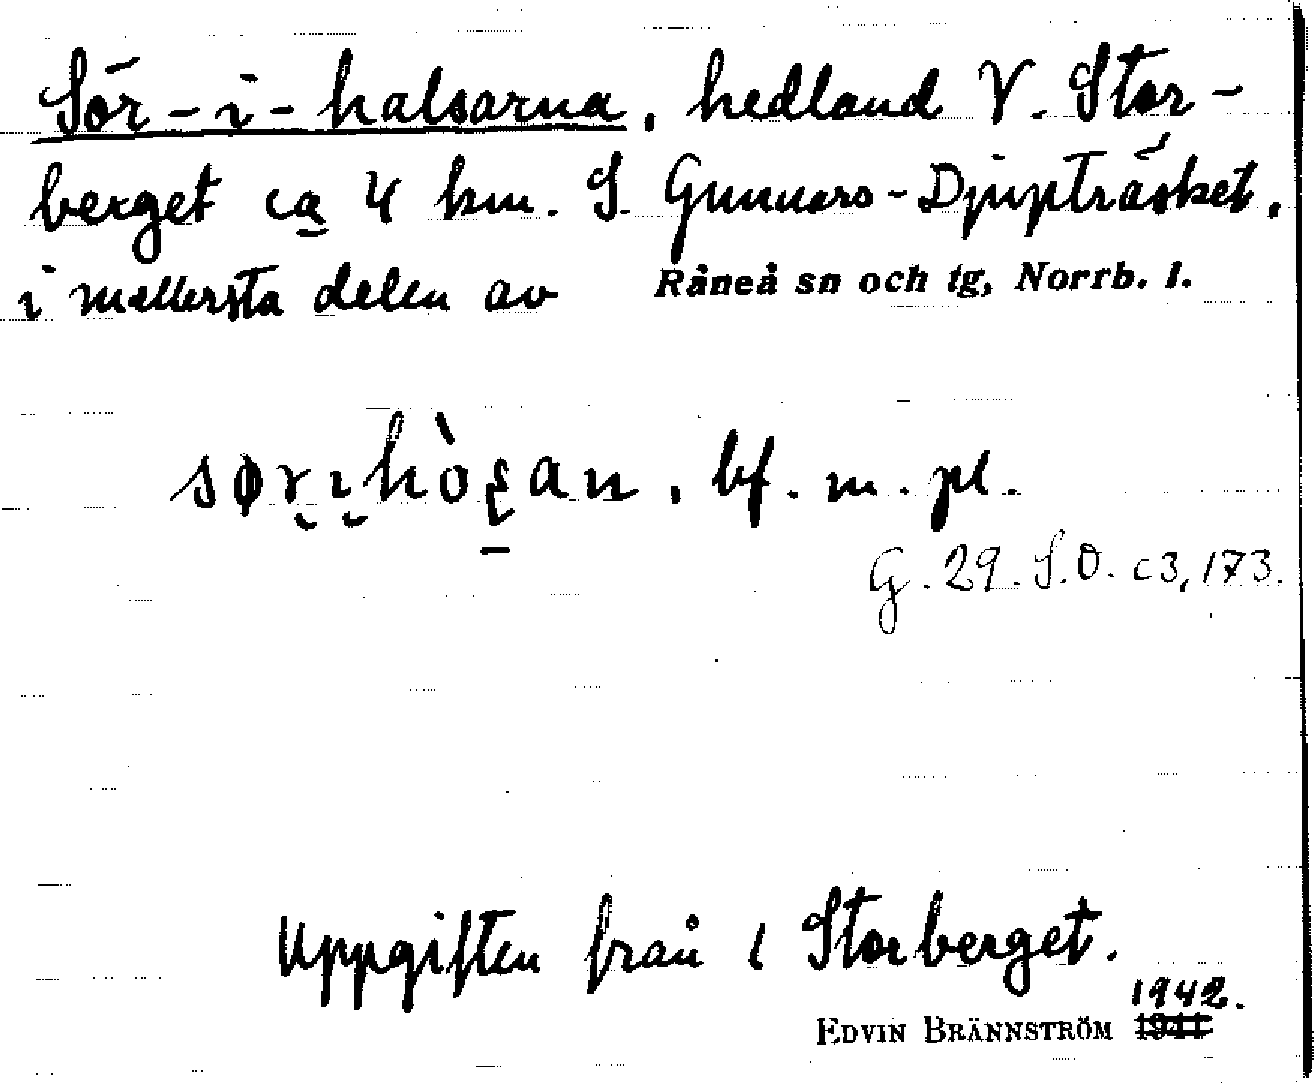 Sör-i-halsarna, hedland V. Stor-
berget ca 4 km. S. Gunnars-Djupträsket,
i mellersta delen av Råneå sn och tg, Norrb. l.
bf. m. pl.
G. 29. S.O. c3, 173.
Uppgiften från 1 Storberget.
1942.
EDVIN BRÄNNSTRÖM 1941